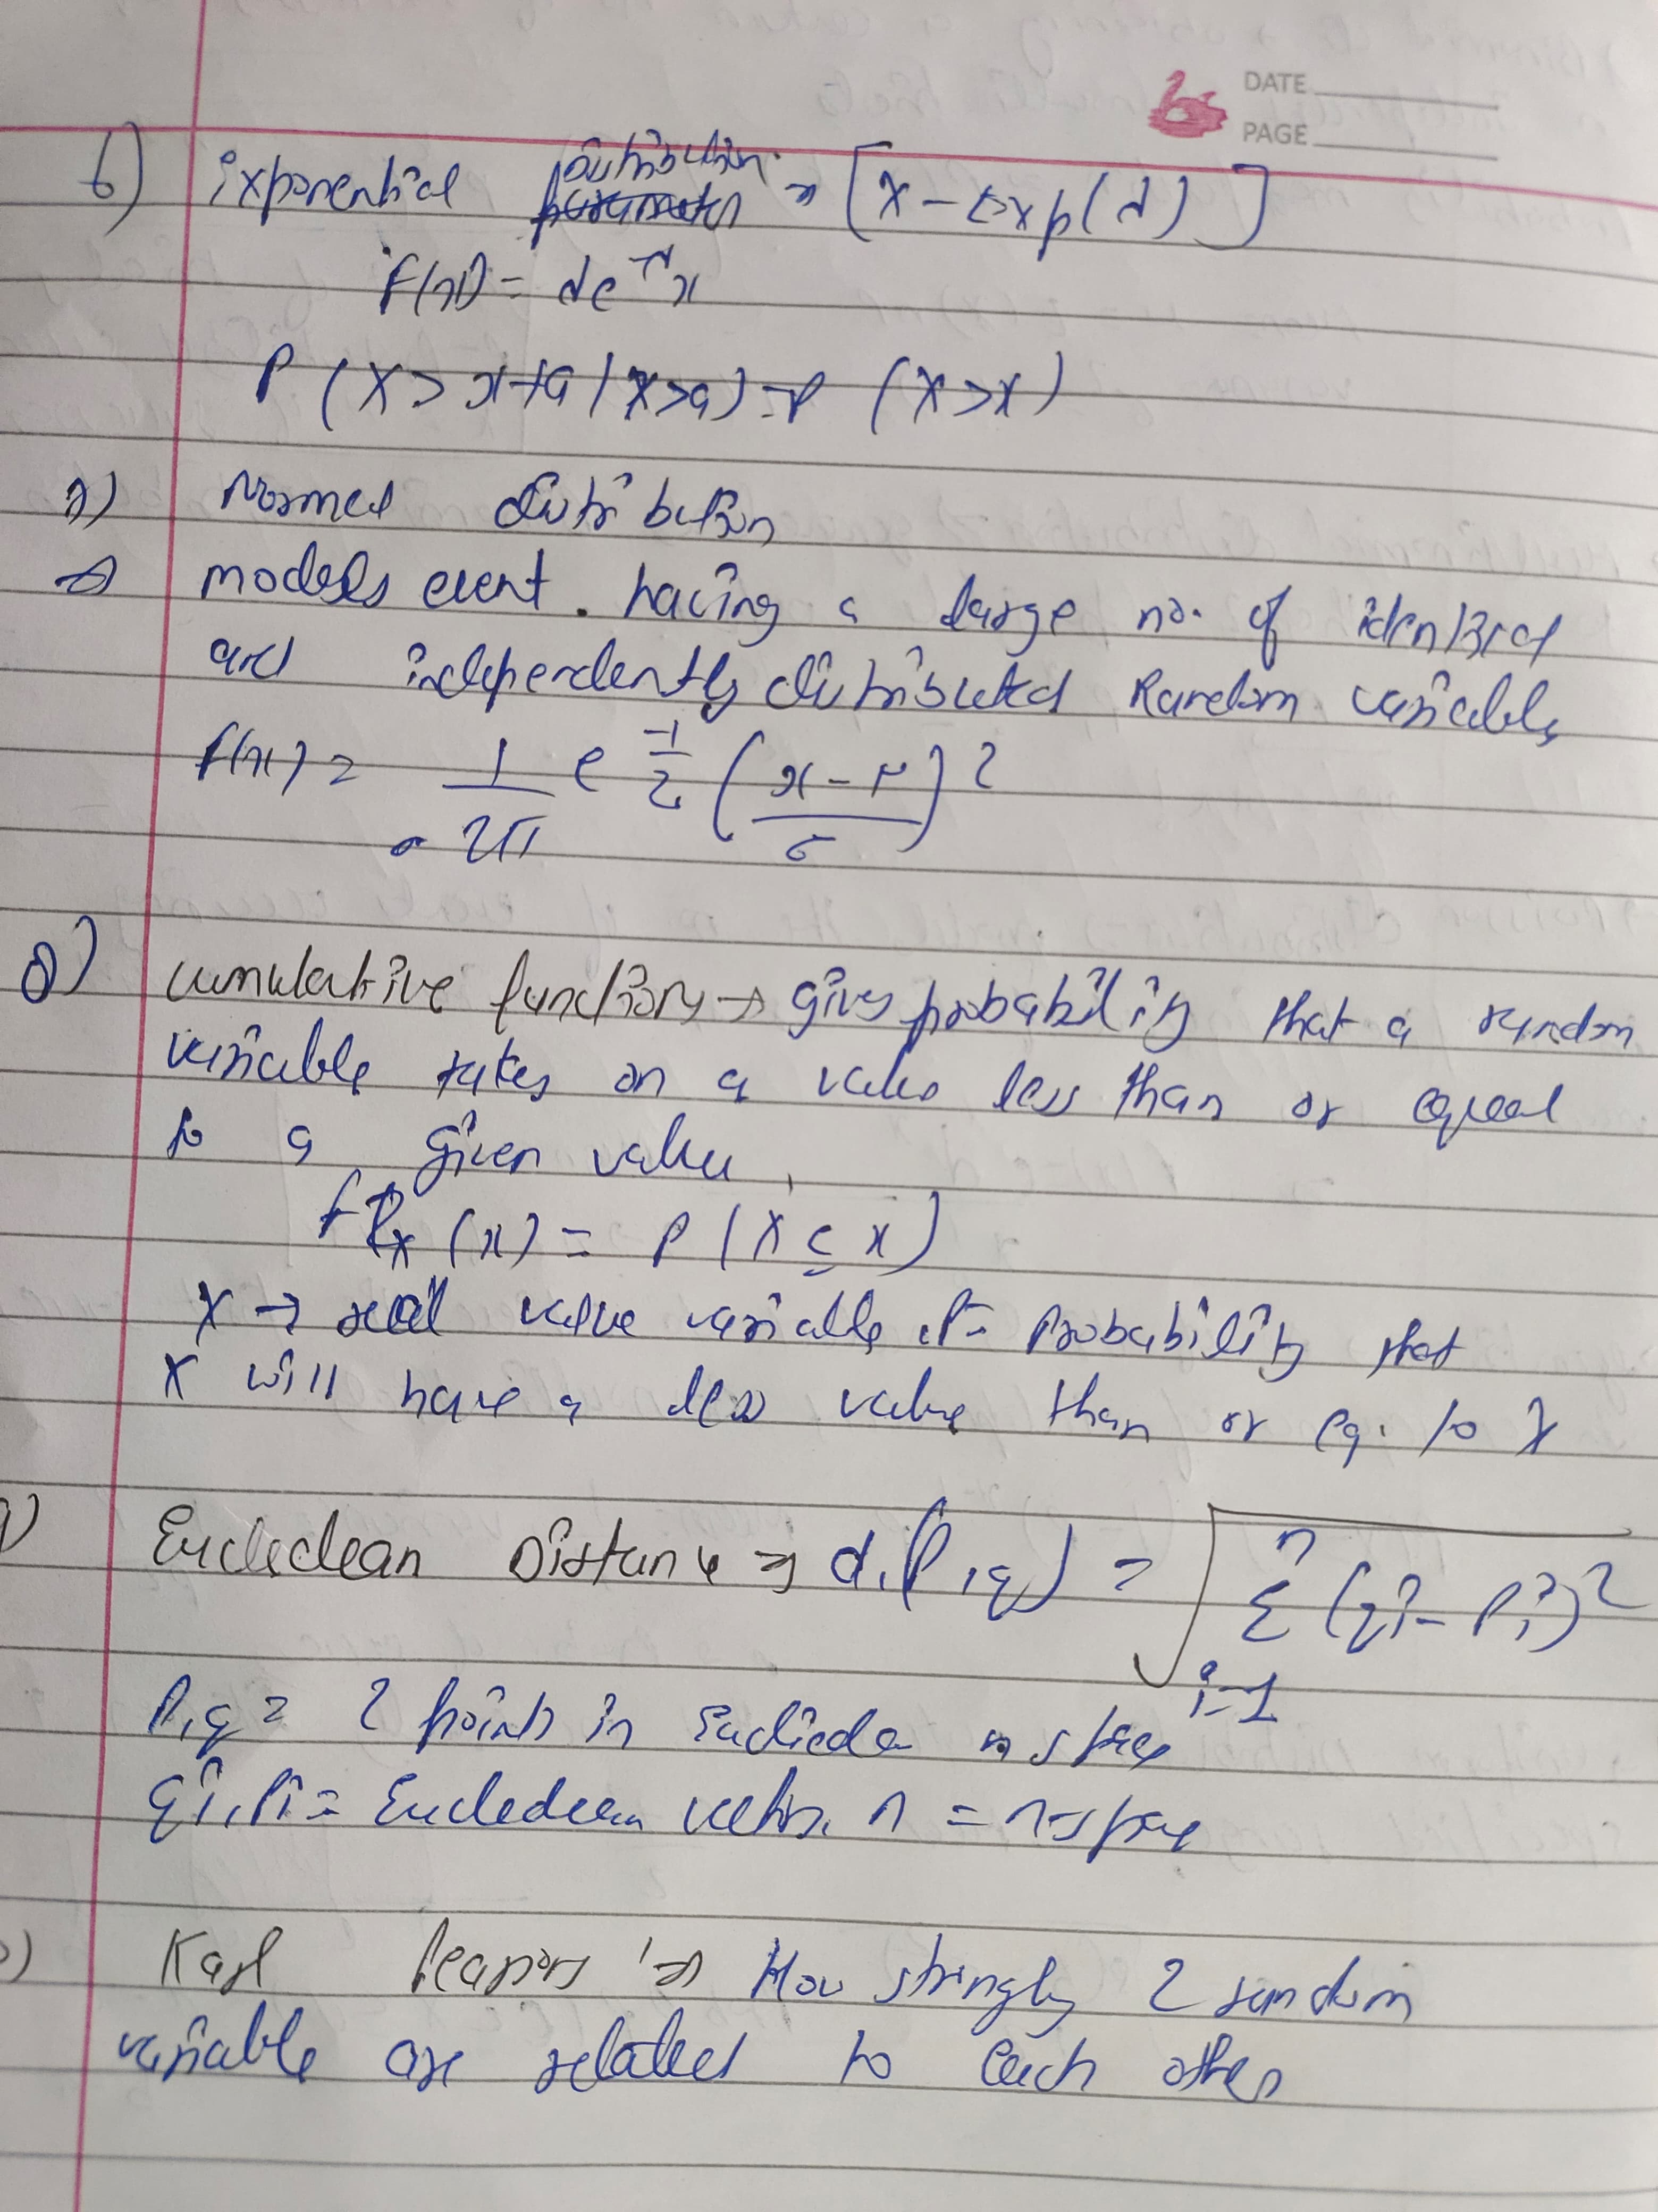 DATE
PAGE
6) Exponential distribution → [X - Exp(λ)]
f(x) = λe^-λx
P (X > x+a | X>a) = P (X>x)
7) Normal distribution
→ models event. having a large no. of identical
and independently distributed Random variable,
f(x) = 1/σ√2π e -1/2 (x-μ/σ)2
8) Cumulative function → gives probability that a random
variable takes on a value less than or equal
to a given value,
(x) = P (X ≤ x)
X → real value variable, P = Probability that
X will have a less value than or eq. to X
9) Eucledean Distance ⇒ d.(P,q) = √ n Σ i=1 (qi - Pi)2
P,q = 2 points in n space
qi, Pi = Eucledean vector. n = n-space
Karl Pearsons ⇒ How stringly 2 random
variable are related to each other